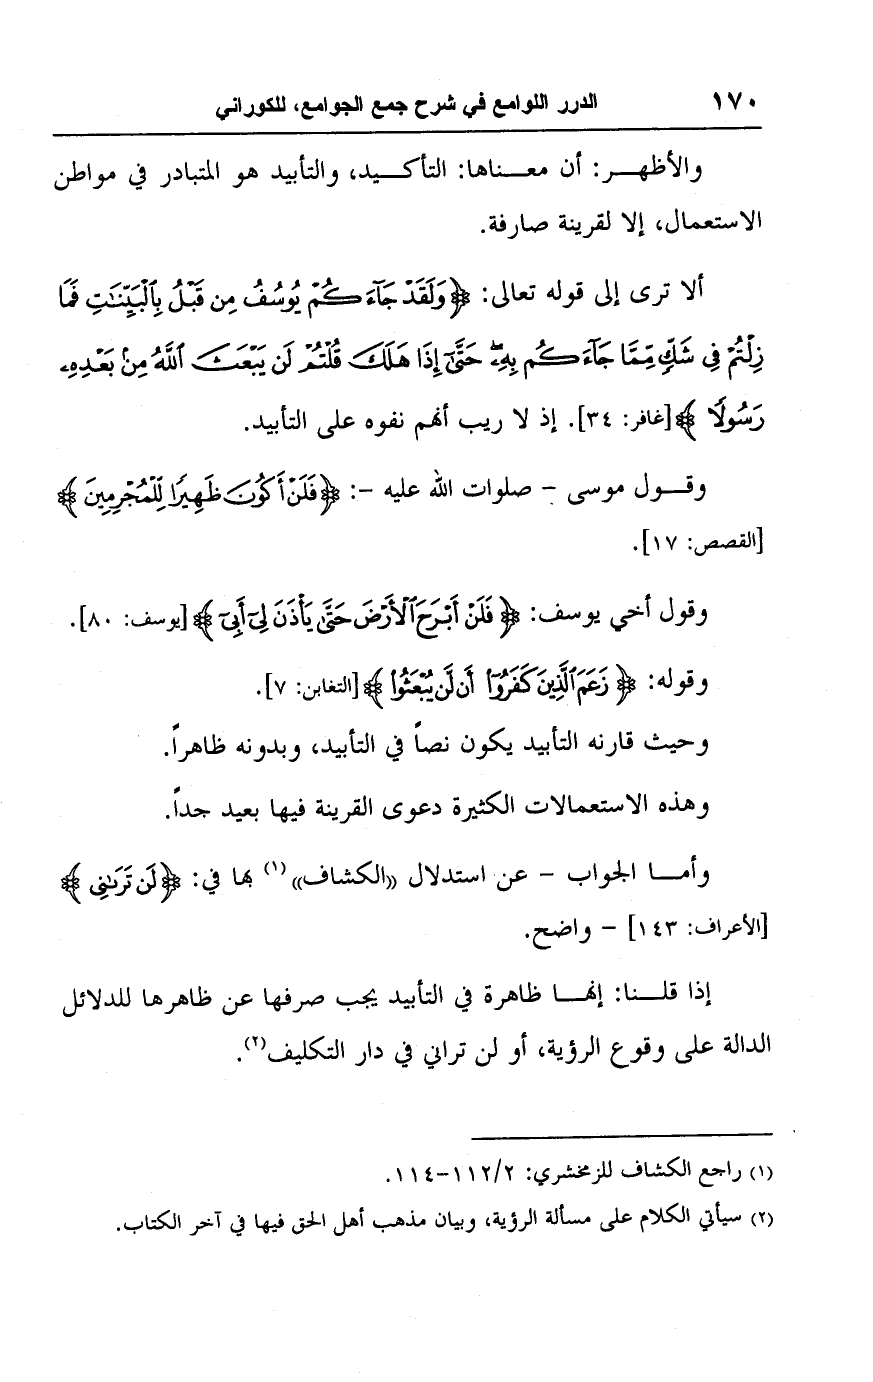 ١٧٠ الدرر اللوامع في شرح جمع الجوامع، للكوراني
والأظهـــر: أن معـــناها: التأكـــيد، والتأبيد هو المتبادر في مواطن
الاستعمال، إلا لقرينة صارفة.
ألا ترى إلى قوله تعالى: ﴿وَلَقَدْ جَآءَكُمْ يُوسُفُ مِن قَبْلُ بِٱلْبَيِّنَٰتِ فَمَا
زِلْتُمْ فِى شَكٍّ مِّمَّا جَآءَكُم بِهِۦ ۖ حَتَّىٰٓ إِذَا هَلَكَ قُلْتُمْ لَن يَبْعَثَ ٱللَّهُ مِنۢ بَعْدِهِۦ
رَسُولًا﴾ [غافر: ٣٤]. إذ لا ريب أنهم نفوه على التأبيد.
وقـــول موسى – صلوات الله عليه –: ﴿فَلَنْ أَكُونَ ظَهِيرًا لِّلْمُجْرِمِينَ﴾
[القصص: ١٧].
وقول أخي يوسف: ﴿فَلَنْ أَبْرَحَ ٱلْأَرْضَ حَتَّىٰ يَأْذَنَ لِىٓ أَبِىٓ﴾ [يوسف: ٨٠].
وقوله: ﴿زَعَمَ ٱلَّذِينَ كَفَرُوٓا۟ أَن لَّن يُبْعَثُوا۟﴾ [التغابن: ٧].
وحيث قارنه التأبيد يكون نصاً في التأبيد، وبدونه ظاهراً.
وهذه الاستعمالات الكثيرة دعوى القرينة فيها بعيد جداً.
وأمـــا الجواب – عن استدلال «الكشاف»(١) بها في: ﴿لَن تَرَىٰنِى﴾
[الأعراف: ١٤٣] – واضح.
إذا قلـــنا: إنهـــا ظاهرة في التأبيد يجب صرفها عن ظاهرها للدلائل
الدالة على وقوع الرؤية، أو لن تراني في دار التكليف(٢).
(١) راجع الكشاف للزمخشري: ١١٢/٢–١١٤.
(٢) سيأتي الكلام على مسألة الرؤية، وبيان مذهب أهل الحق فيها في آخر الكتاب.